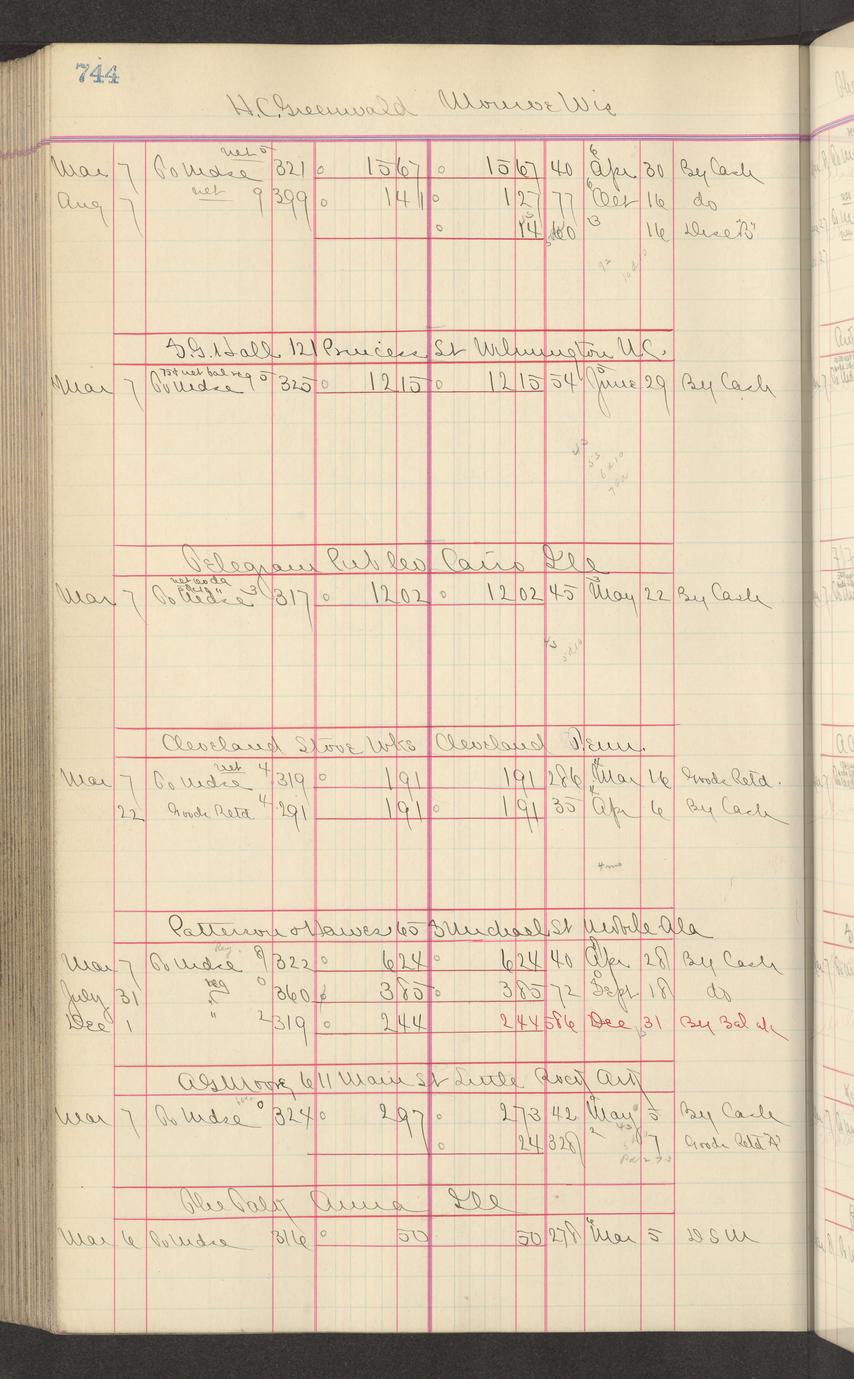 744
H.C. Greenwald Monroe Wis
Mar 7 To Mdse net 5 321 15 67 15 67 40 Apr 30 By Cash
Aug 7 net 9 399 1 41 1 27 77 Oct 16 do
14 16 Disc "B"
121 Princess St Wilmington N.C.
Mar 7 To Mdse 5 325 12 15 12 15 54 June 29 By Cash
Telegram Pub Co Cairo Ill
Mar 7 To Mdse 3 317 12 02 12 02 45 May 22 By Cash
Cleveland Stove Wks Cleveland Penn.
Mar 7 To Mdse net 4 319 1 91 1 91 286 Mar 16 Goods Retd.
22 Goods Retd 4 291 1 91 1 91 35 Apr 6 By Cash
Patterson & Hawes 65 St Michael St Mobile Ala
Mar 7 To Mdse Reg. 9 322 6 24 6 24 40 Apr 28 By Cash
July 31 " reg 0 360 3 85 3 85 72 Sept 18 do
Dec 1 " 2 319 2 44 2 44 586 Dec 31 By Bal
A G Moore, 611 Main St Little Rock Ark
Mar 7 To Mdse 0 324 2 97 2 73 42 May 5 By Cash
24 328 7 Goods Retd "A"
Anna Ill
Mar 6 To Mdse 316 50 50 278 Mar 5 D S M